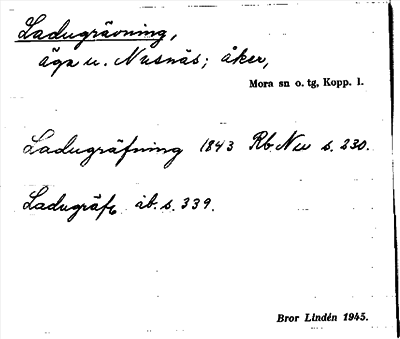 Ladugrävning,
äga u. Nusnäs; åker,
Mora sn o. tg, Kopp. l.
Ladugräfning 1843 Rb Nu s. 230.
Ladugräfn. ib. s. 339.
Bror Lindén 1945.